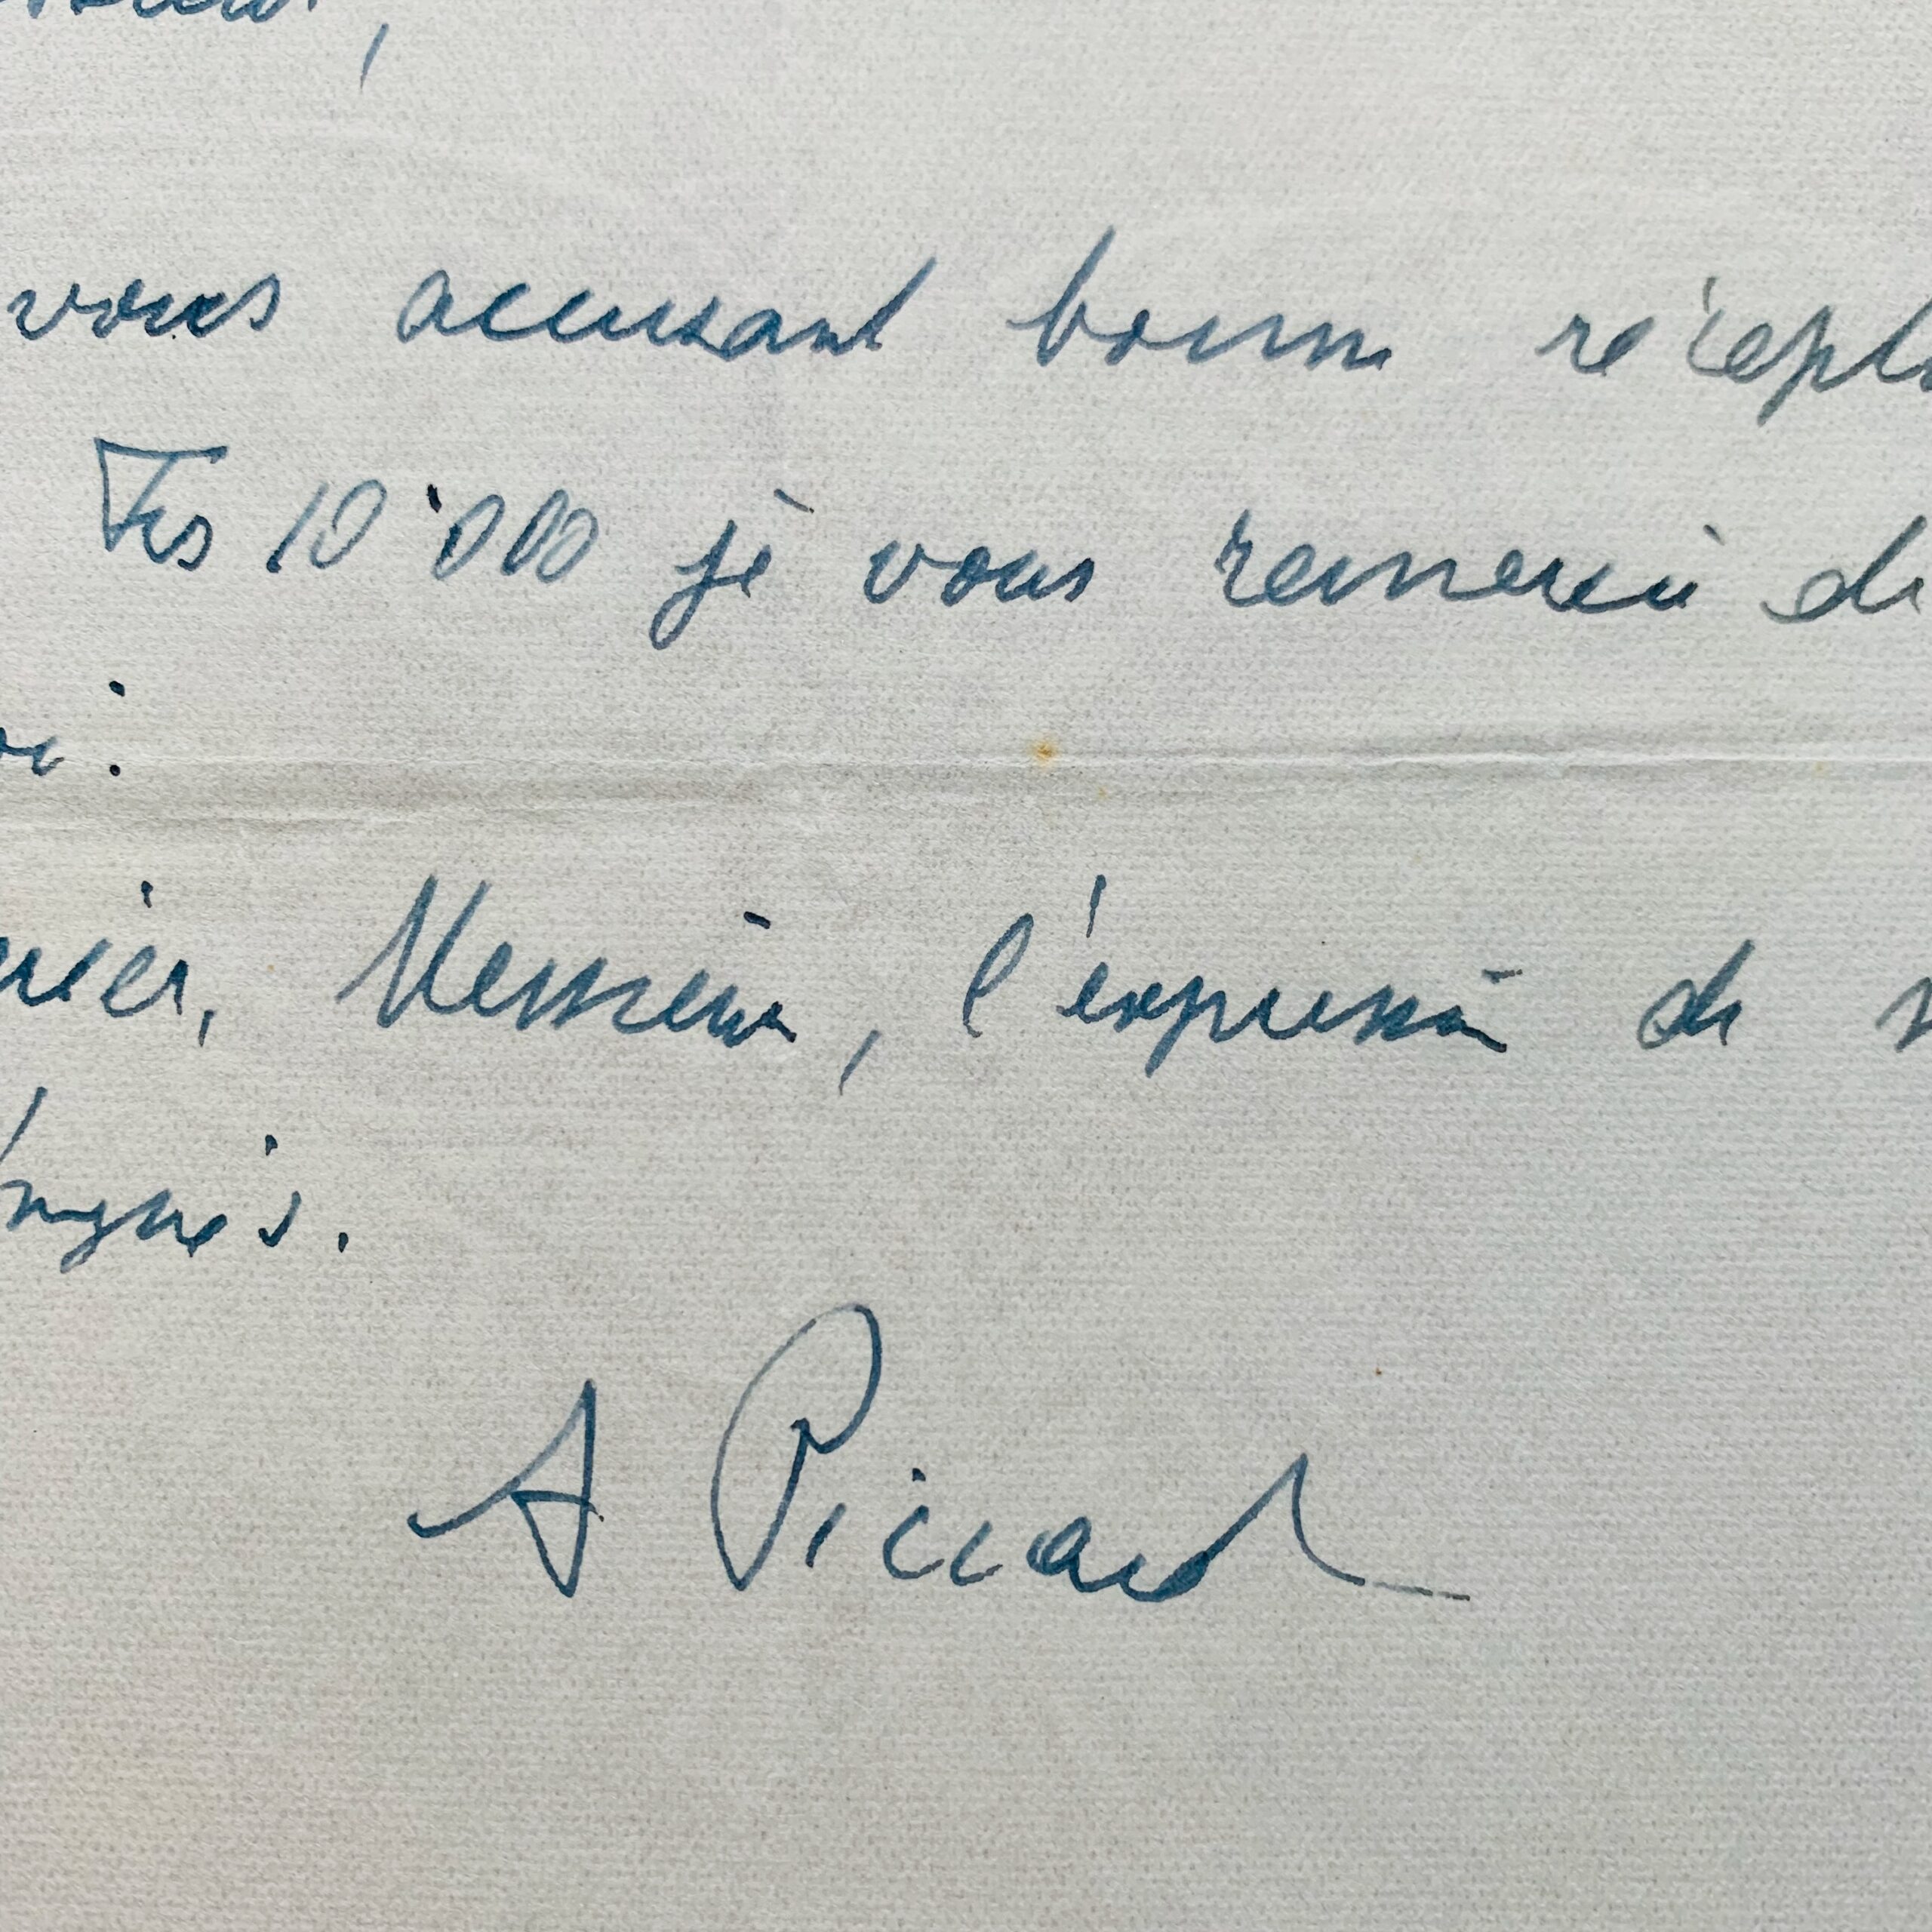 vous accusant bonne récept
Frs 10'000 je vous remercie de
Messieurs, l'expression de
A Piccard